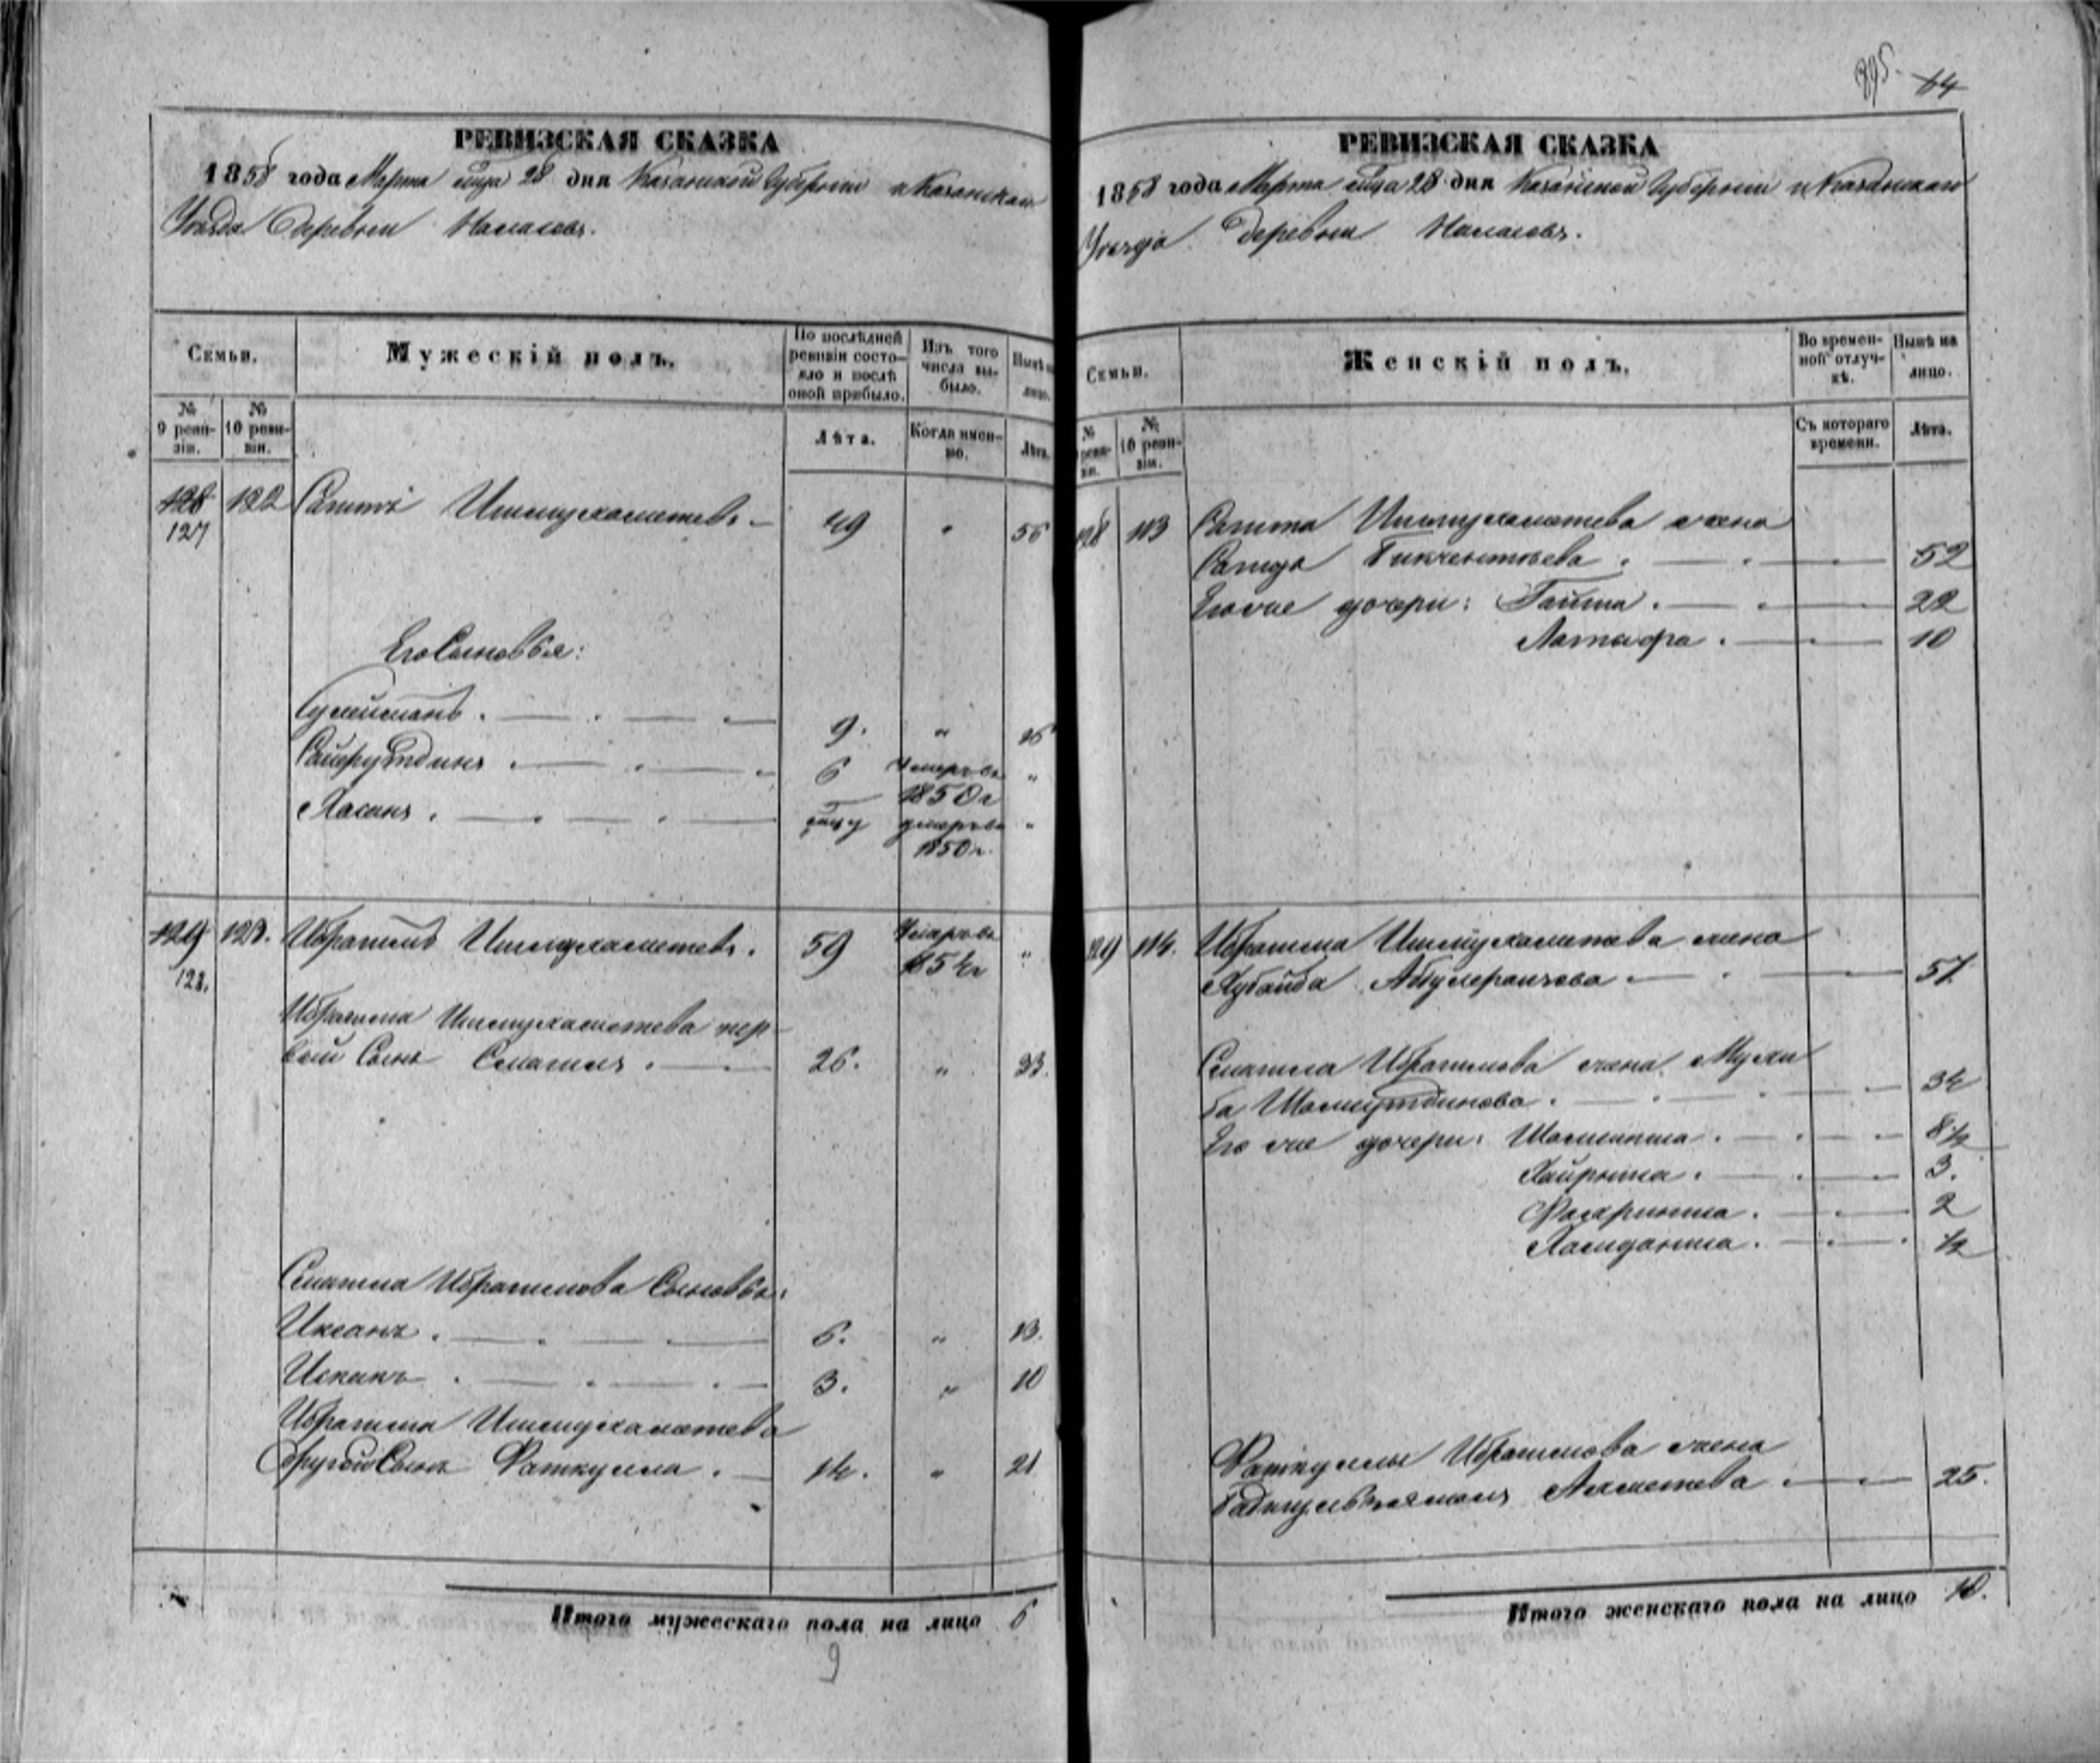 РЕВИЗСКАЯ СКАЗКА
1858 года Марта мца 28 дня Казанской Губернiи и Казанскаго
Уѣзда Деревни
Семьи.
Мужескiй полъ.
По послѣдней ревизiи состояло и послѣ оной прибыло.
Изъ того числа выбыло.
Нынѣ на лицо.
№ 9 ревизiи.
№ 10 ревизiи.
Лѣта.
Когда именно.
Лѣта.
128 122 Сагитъ Ишмухаметевъ 49 " 56
127
Его Сыновья:
Сулейманъ. 9. " 16
6 Умеръ въ "
1850 г
Хасанъ. умеръ въ "
1850 г.
129 123. Ибрагимъ Ишмухаметевъ. 59 Умеръ въ "
128. 1854 г
Ибрагима Ишмухаметева пер-
вой Сынъ Смагилъ. 26. " 33.
Смагила Ибрагимова Сыновья:
Иксанъ. 6. " 13.
Исхакъ. 3. " 10
Ибрагима Ишмухаметева
другой Сынъ Фаткулла. 14. " 21
Итого мужескаго пола на лицо 6
9
895. 64
РЕВИЗСКАЯ СКАЗКА
1858 года Марта мца 28 дня Казанской Губернiи и Казанскаго
Уѣзда Деревни
Семьи.
Женскiй полъ.
Во временной отлучкѣ.
Нынѣ на лицо.
№ ревизiи.
№ 10 ревизiи.
Съ котораго времени.
Лѣта.
128 113 Сагита Ишмухаметева жена
Бикчентѣева. 52
Его же дочери: 22
Латифа. 10
129 114. Ибрагима Ишмухаметева жена
Хубайда 57
Смагила Ибрагимова жена Мухи
ба Шамсутдинова. 34
Его же дочери: 8½
3.
2
½
Фаткуллы Ибрагимова жена
Ахметева 25.
Итого женскаго пола на лицо 10.